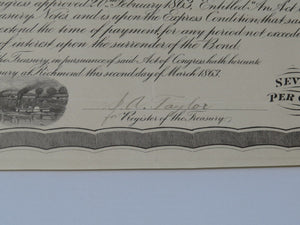 ngress approved 20th February 1863, Entitled An Act
Treasury Notes and is upon the Express Condition that
the time of payment for any period not
of interest upon the surrender of the Bond.
the Treasury, in pursuance of said Act of Congress hath hereunto
at Richmond this second day of March 1863.
SEV
PER
J. A. Taylor
for Register of the Treasury